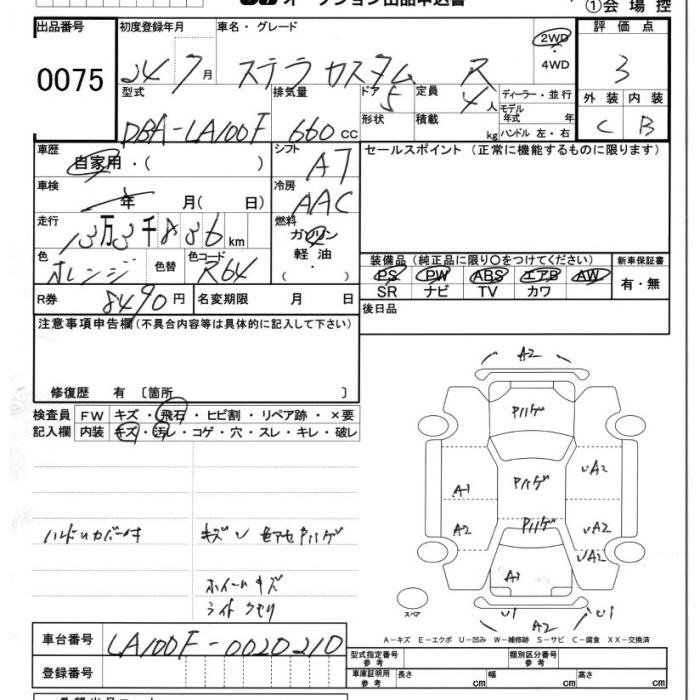 オークション出品申込書
①会場控
出品番号 初度登録年月 車名・グレード 評価点
0075 24 7月 ステラカスタム R 2WD・4WD 3
型式 排気量 ドア 5 定員 4人 ディーラー・並行 外装 内装
DBA-LA100F 660cc 形状 積載 kg モデル年式 年 C B
ハンドル 左・右
車歴 自家用・( ) シフト AT セールスポイント (正常に機能するものに限ります)
車検 年 月( 日) 冷房 AAC
走行 13万3千836km 燃料 ガソリン
軽油
( ・ )
色 オレンジ 色替 色コード R64
装備品(純正品に限り〇をつけてください) 新車保証書
PS PW ABS エアB AW 有・無
SR ナビ TV カワ
R券 8490円 名変期限 月 日 後日品
注意事項申告欄(不具合内容等は具体的に記入して下さい)
修復歴 有 〔箇所 〕
検査員 FW キズ・飛石・ヒビ割・リペア跡・×要
記入欄 内装 キズ・汚レ・コゲ・穴・スレ・キレ・破レ
A2
ハゲ
ハゲ UA2
A1
ハゲ
A2 UA2
UA2
ハンドルカバー付 キズ U 色アセ ハゲ
A1
ホイールキズ
ライトクモリ
スペア U1 U1
A-キズ E-エクボ U-凹み W-補修跡 S-サビ C-腐食 XX-交換済
車台番号 LA100F-0020210
型式指定番号 参考 類別区分番号 参考
登録番号 車庫証明用 参考 長さ cm 幅 cm 高さ cm